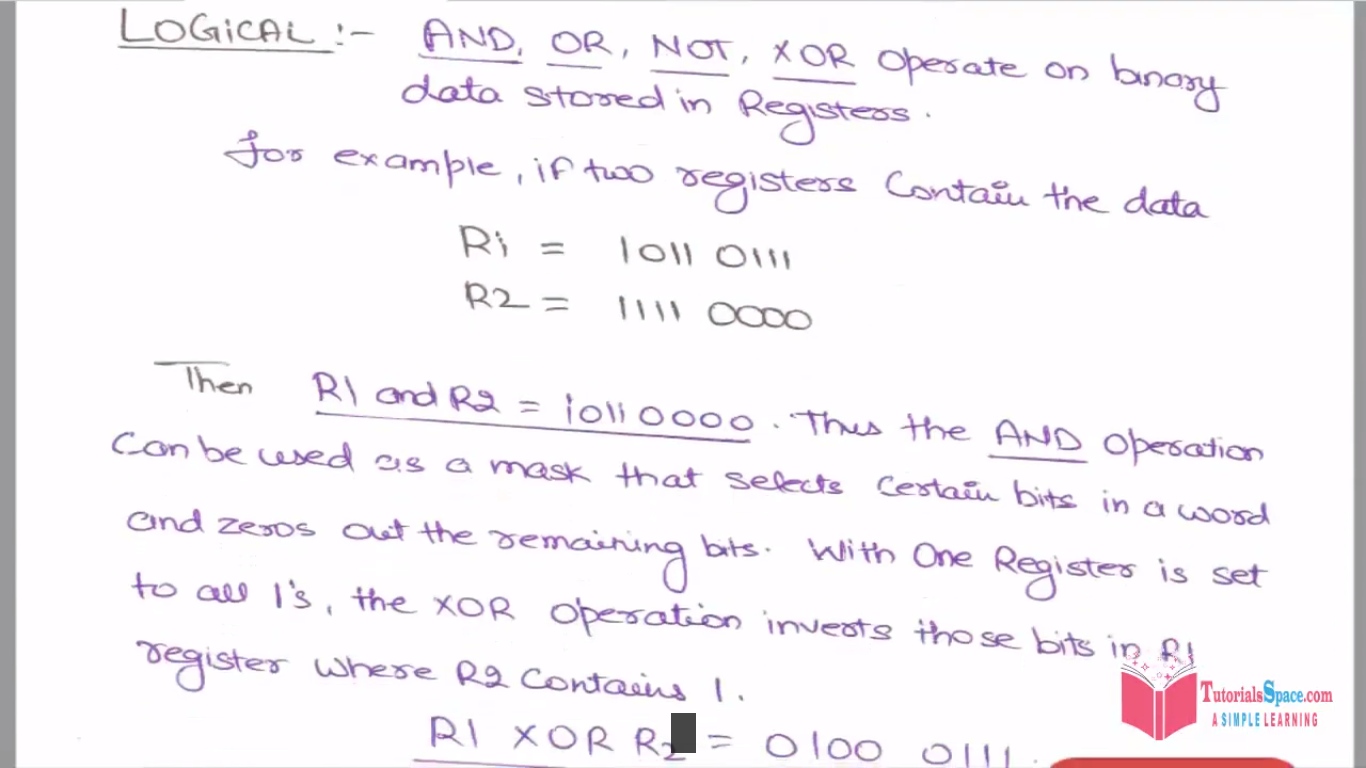 LOGICAL :- AND, OR, NOT, XOR Operate on binary
data stored in Registers.
for example, if two registers Contain the data
R1 = 1011 0111
R2 = 1111 0000
Then R1 and R2 = 1011 0000. Thus the AND Operation
Can be used as a mask that selects certain bits in a word
and zeros out the remaining bits. With One Register is set
to all 1's, the XOR Operation inverts those bits in R1
register where R2 Contains 1.
R1 XOR R2 = 0100 0111.
TutorialsSpace.com
A SIMPLE LEARNING